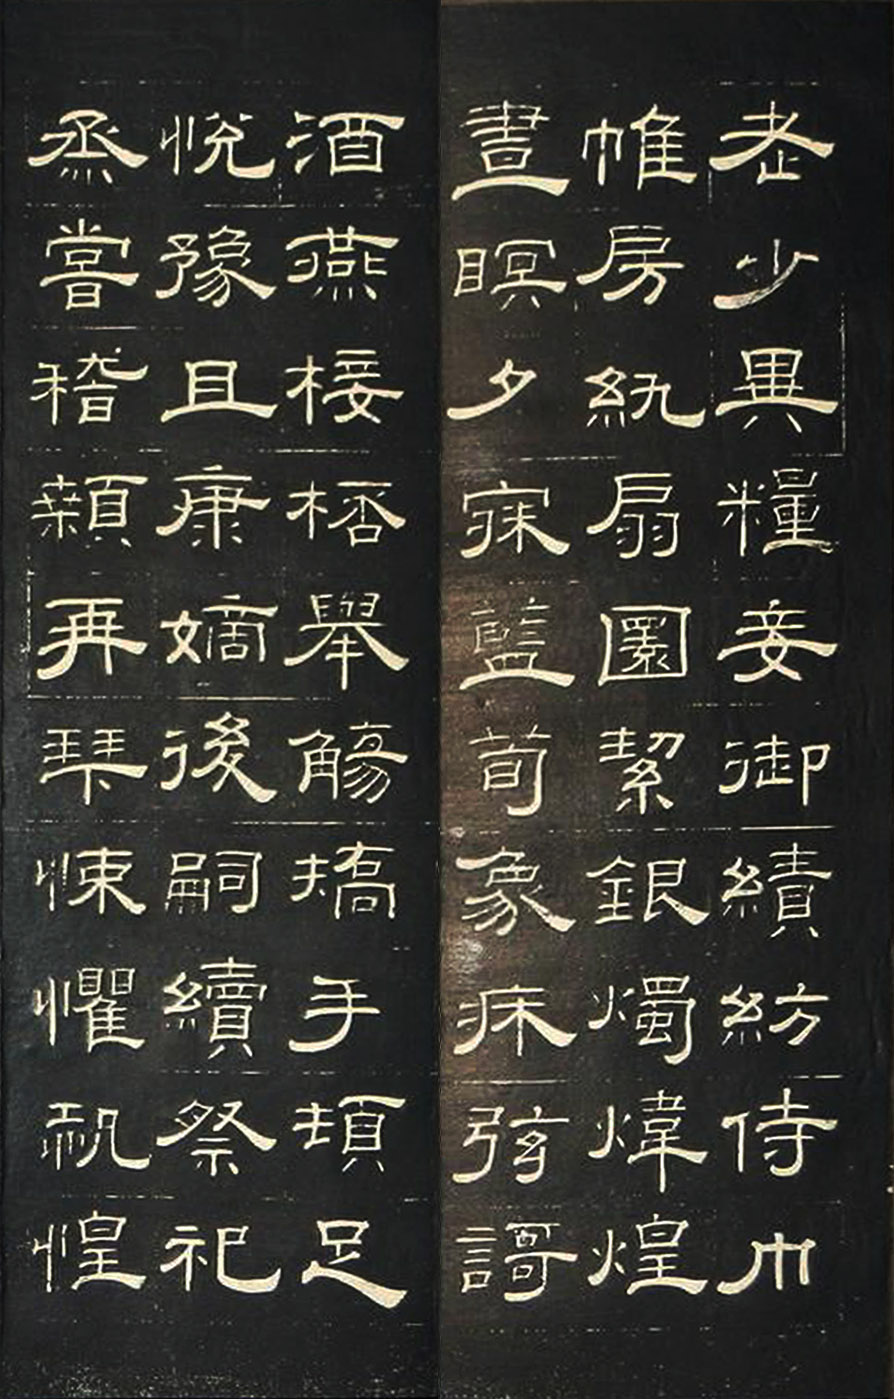 老少異糧妾御績紡侍巾
帷房紈扇圜絜銀燭煒煌
晝瞑夕寐藍荀象床弦謌
酒燕接桮舉觴矯手頓足
悅豫且康嫡後嗣續祭祀
烝嘗稽顙再拜悚懼恐惶